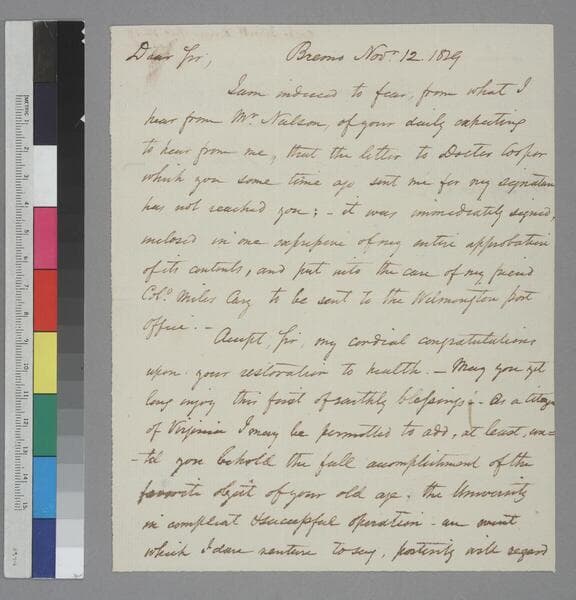 Dear Sir, Bremo Novr 12 1829
I am induced to fear, from what I
hear from Mr Nelson, of your daily expecting
to hear from me, that the letter to Doctor Cooper
which you some time ago sent me for my signature
has not reached you; - it was immediately signed,
inclosed in one expressive of my entire approbation
of its contents, and put into the care of my friend
Colo. Miles Cary to be sent to the Wilmington post
office. -
Accept, Sir, my cordial congratulations
upon your restoration to health. - May you yet
long enjoy this first of earthly blessings; - as a citizen
of Virginia I may be permitted to add, at least, un=
-til you behold the full accomplishment of the
favorite object of your old age. the University
in compleat & successful operation - an event
which I dare venture to say, posterity will regard